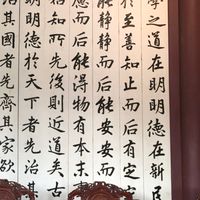 學之道在明明德在新
於至善知止而后有定
能靜靜而后能安安而
慮而后能得物有本末
始知所先後則近道矣古
明明德於天下者先治其
治其國者先齊其家欲